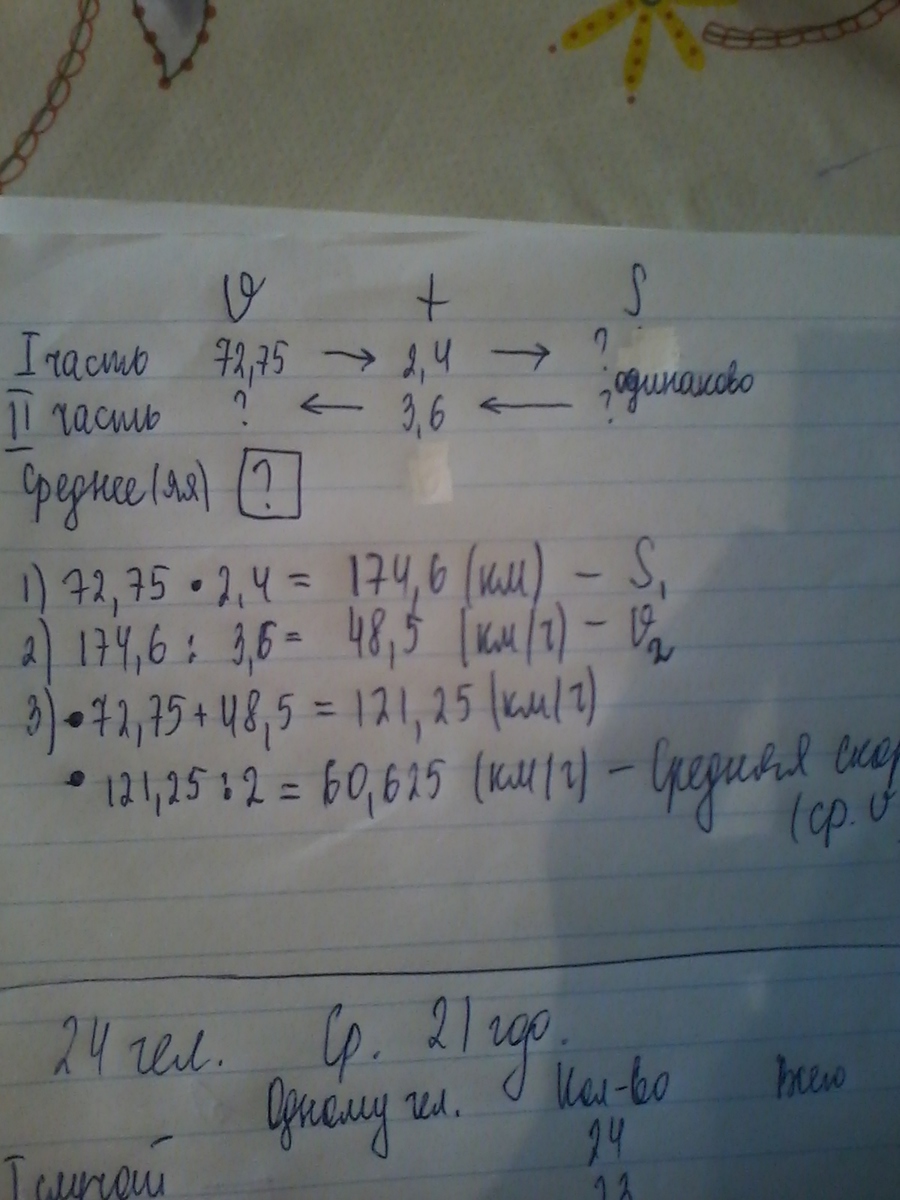 V t S
I часть 72,75 → 2,4 → ?
одинаково
II часть ? ← 3,6 ← ?
Среднее(яя) ?
1) 72,75 • 2,4 = 174,6 (км) – S₁
2) 174,6 : 3,6 = 48,5 (км/ч) – V₂
3) • 72,75 + 48,5 = 121,25 (км/ч)
• 121,25 : 2 = 60,625 (км/ч) – Средняя скор
(ср. V
24 чел. Ср. 21 год.
Одному чел. Кол-во Всего
24
I случай